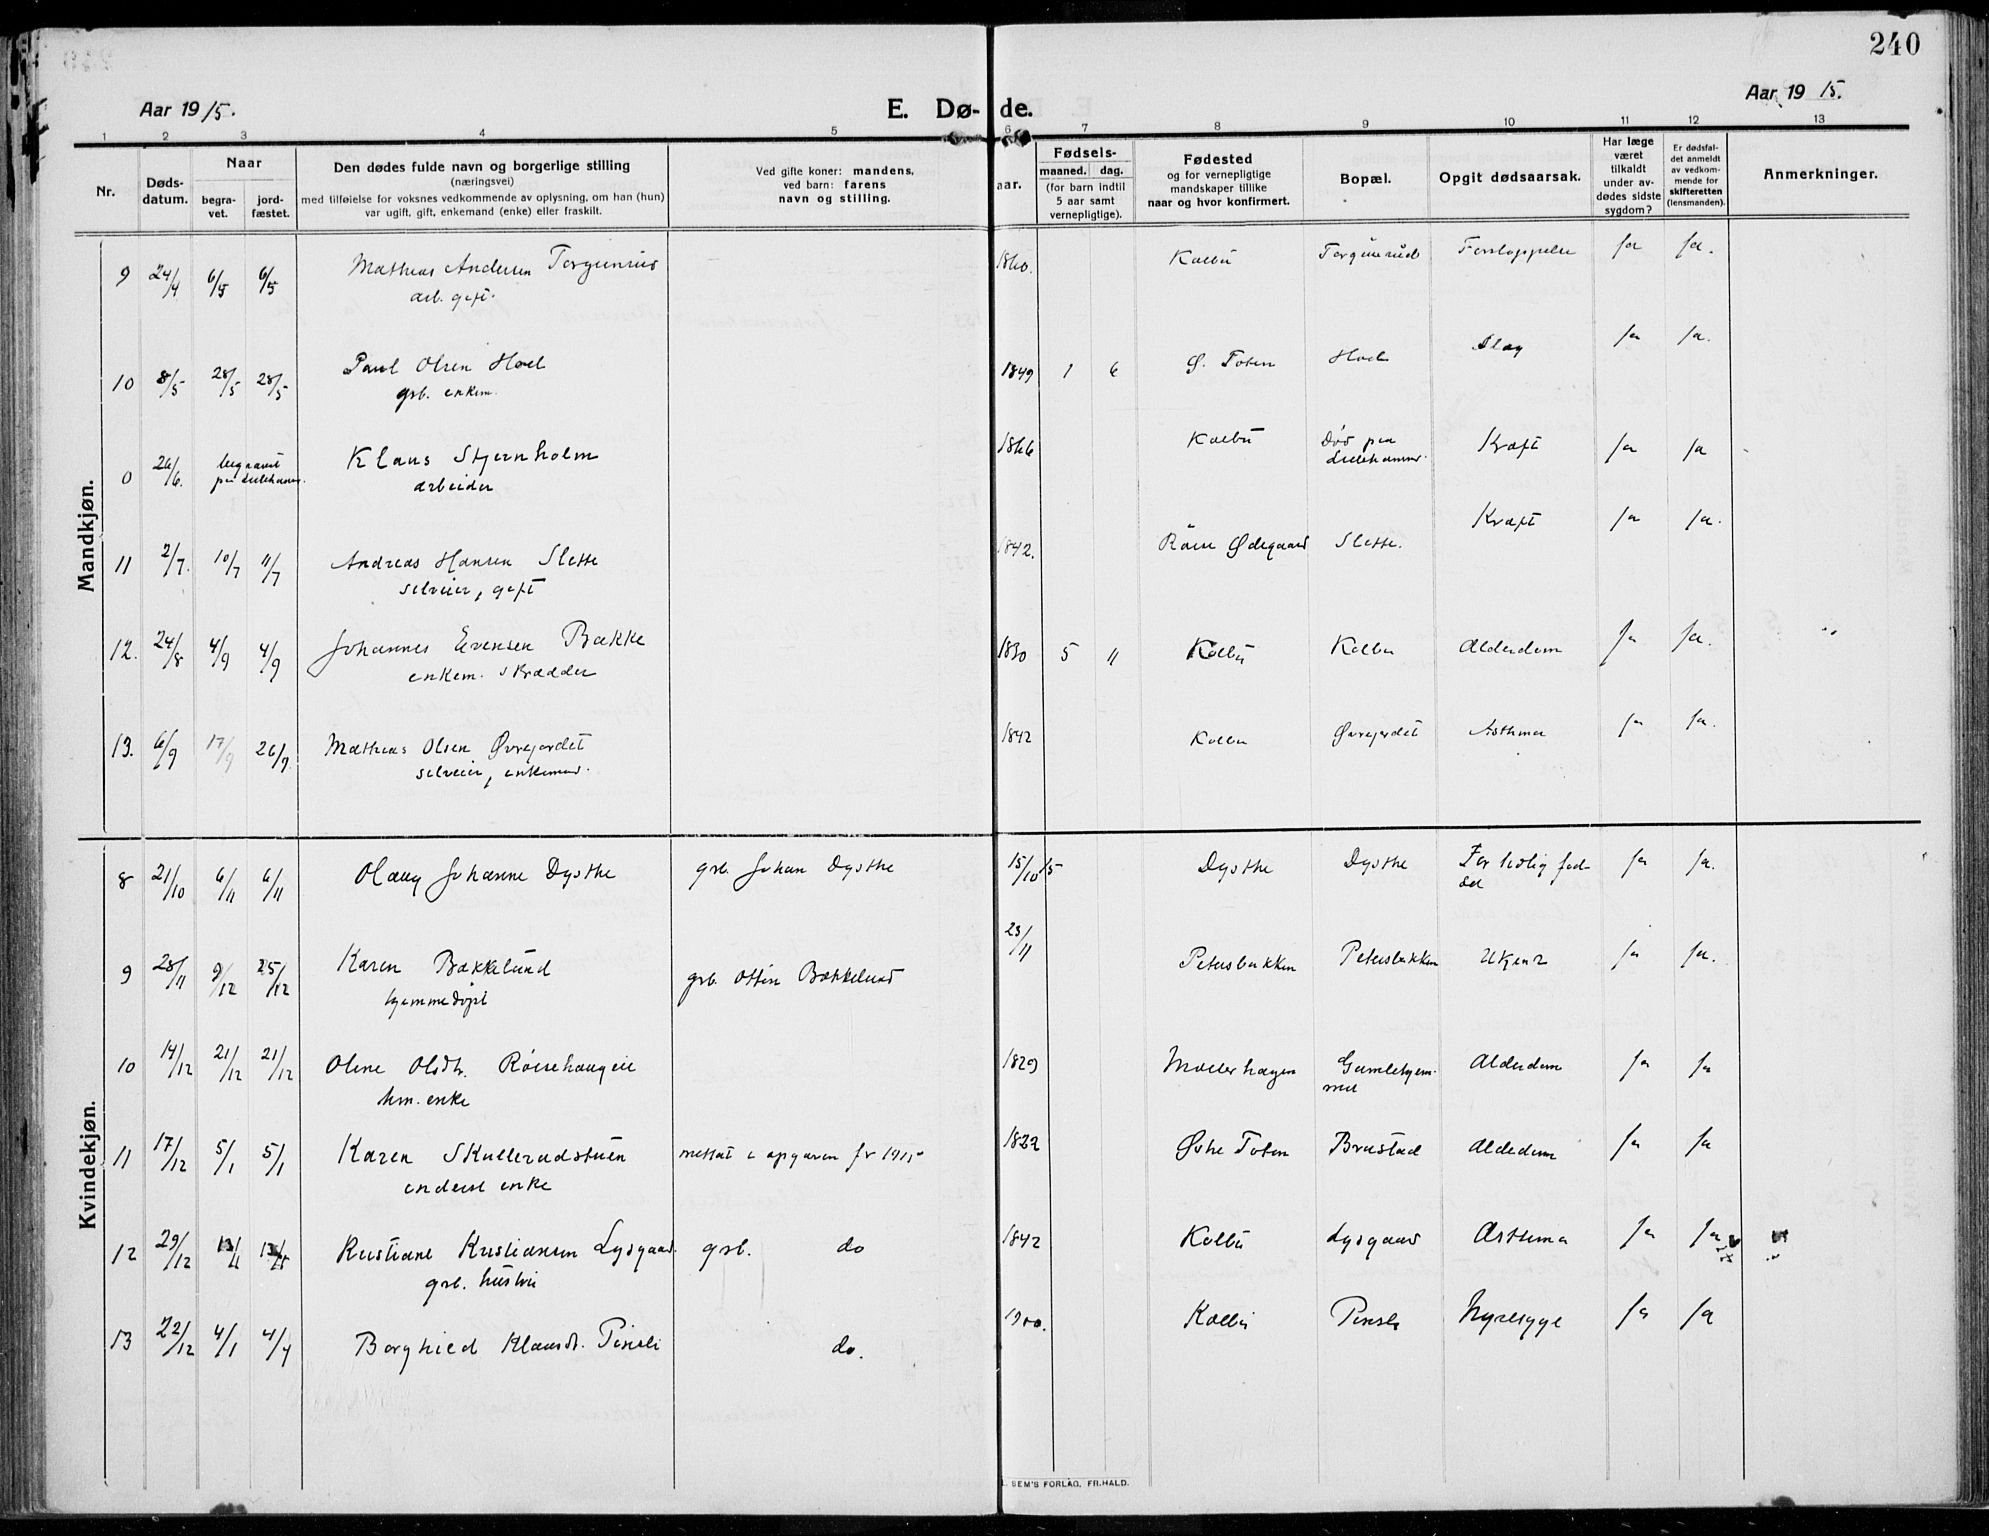 240
Aar 1915. E. Dø-de. Aar 1915.
1 2 3 4 5 6 7 8 9 10 11 12 13
Nr.
Døds-
datum.
Naar
begra-
vet.
jord-
fæstet.
Den dødes fulde navn og borgerlige stilling
(næringsvei)
med tilføielse for voksnes vedkommende av oplysning, om han (hun)
var ugift, gift, enkemand (enke) eller fraskilt.
Ved gifte koner: mandens,
ved barn: farens
navn og stilling.
aar.
Fødsels-
maaned. dag.
(for barn indtil
5 aar samt
vernepligtige).
Fødested
og for vernepligtige
mandskaper tillike
naar og hvor konfirmert.
Bopæl.
Opgit dødsaarsak.
Har læge
været
tilkaldt
under av-
dødes sidste
sygdom?
Er dødsfal-
det anmeldt
av vedkom-
mende for
skifteretten
(lensmanden).
Anmerkninger.
Mandkjøn.
9 24/4 6/5 6/5 Mathias Andersen Torgunrud 1860. Kolbu Torgunrud Forstoppelse ja ja.
arb. gift.
10 8/5 28/5 28/5 Paul Olsen Hoel 1849 1 6 Ø. Toten Hoel Slag ja ja.
grb. enkem.
0 26/6. begravet Klaus Stjernholm 1866 Kolbu Død paa Kræft ja ja
paa Lillehamer. arbeider Lillehammer.
11 2/7. 10/7 11/7 Andreas Hansen Slette 1842. Röise Ødegaard Slette. Kræft ja ja.
selveier, gift
12. 24/8 4/9 4/9 Johannes Evensen Bække 1830 5 11 Kolbu Kolbu Alderdom ja ja.
enkem. skrædder
13. 6/9 17/9 26/9. Mathias Olsen Øvrejordet 1842 Kolbu Øvrejordet Asthma ja ja.
selveier, enkemand.
Kvindekjøn.
8 21/10 6/11 6/11 Olaug Johanne Dysthe grb. Johan Dysthe 15/10 15 Dysthe Dysthe For tidlig fød-
sel ja ja.
9 28/11 9/12 25/12 Karen Bækkelund grb. Ottin Bækkelund 23/11 Petersbakken Petersbakken Ukjent ja ja.
hjemmedøpt
10 14/12 21/12 21/12 Oline Olsdtr. Röisehaugeie 1829 Mollerhagen Gamlehjem-
met Alderdom ja ja
hm. enke
11 17/12 5/1 5/1 Karen Skullerudstuen medtat i opgaven for 1915 1822 Østre Toten Brustad Alderdom ja ja
inderst enke
12 29/12 Kristiane Kristiansen Lysgaard. grb. do 1842 Kolbu Lysgaard Asthma ja ja
grb. hustru
13 22/12 4/1 4/1 Borghild Klausdt. Pinsli do. 1900. Kolbu Pinsli Nyresyge ja ja
SEM'S FORLAG, FR.HALD.